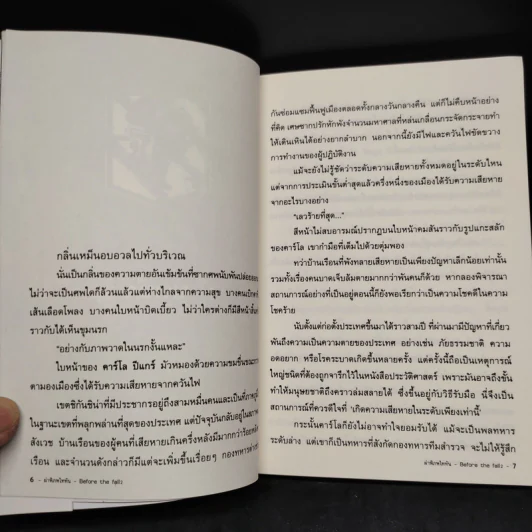 กลิ่นเหม็นอบอวลไปทั่วบริเวณ
นั่นเป็นกลิ่นของความตายอันเข้มข้นที่ซากศพนับพันปล่อยออกมา
ไม่ว่าจะเป็นศพใดก็ล้วนแล้วแต่ห่างไกลจากความสุข บางคนเบิกตา
เส้นเลือดโพลง บางคนใบหน้าบิดเบี้ยว ไม่ว่าใครต่างก็มีสีหน้า
ราวกับได้เห็นขุมนรก
"อย่างกับภาพวาดในนรกงั้นแหละ"
ใบหน้าของ คาร์โล ปิแกร์ มัวหมองด้วยความขมขื่นขณะ
ตามองเมืองซึ่งได้รับความเสียหายจากควันไฟ
เขตชิกันชิน่าที่มีประชากรอยู่ถึงสามหมื่นคนและเป็นที่
ในฐานะเขตที่พลุกพล่านที่สุดของประเทศ แต่ปัจจุบันกลับอยู่ในสภาพ
สังเวช บ้านเรือนของผู้คนที่เสียหายเกินครึ่งหลังมีมากกว่าร้อย
เรือน และจำนวนดังกล่าวก็มีแต่จะเพิ่มขึ้นเรื่อยๆ กองทหาร
6 - ผ่าพิภพไททัน - Before the fall:
กันซ่อมแซมฟื้นฟูเมืองตลอดทั้งกลางวันกลางคืน แต่ก็ไม่คืบหน้าอย่าง
ที่คิด เศษซากปรักหักพังจำนวนมหาศาลที่หล่นเกลื่อนกระจัดกระจายทำ
ให้เดินเหินได้อย่างยากลำบาก นอกจากนี้ยังมีไฟและควันไฟขัดขวาง
การทำงานของผู้ปฏิบัติงาน
แม้จะยังไม่รู้ชัดว่าระดับความเสียหายทั้งหมดอยู่ในระดับไหน
แต่จากการประเมินขั้นต่ำสุดแล้วครึ่งหนึ่งของเมืองได้รับความเสียหาย
จากอะไรบางอย่าง
"เลวร้ายที่สุด..."
สีหน้าไม่สบอารมณ์ปรากฏบนใบหน้าคมสันราวกับรูปแกะสลัก
ของคาร์โล เขากำมือที่เต็มไปด้วยตุ่มพอง
ทว่าบ้านเรือนที่พังทลายเสียหายเป็นเพียงปัญหาเล็กน้อยเท่านั้น
รวมทั้งเรื่องคนบาดเจ็บล้มตายมากกว่าพันคนก็ด้วย หากลองพิจารณา
สถานการณ์อย่างที่เป็นอยู่ตอนนี้ก็ยังพอเรียกว่าเป็นความโชคดีในความ
โชคร้าย
นับตั้งแต่ก่อตั้งประเทศขึ้นมาได้ราวสามปี ที่ผ่านมามีปัญหาที่เกี่ยว
พันถึงความเป็นความตายของประเทศ อย่างเช่น ภัยธรรมชาติ ความ
อดอยาก หรือโรคระบาดเกิดขึ้นหลายครั้ง แต่ครั้งนี้ถือเป็นเหตุการณ์
ใหญ่ชนิดที่ต้องถูกจารึกไว้ในหนังสือประวัติศาสตร์ เพราะมันอาจถึงขั้น
ทำให้มนุษยชาติถึงคราวล่มสลายได้ ซึ่งขึ้นอยู่กับวิธีรับมือ นี่จึงเป็น
สถานการณ์ที่ควรดีใจที่ 'เกิดความเสียหายในระดับเพียงเท่านี้'
กระนั้นคาร์โลก็ยังไม่อาจทำใจยอมรับได้ แม้จะเป็นพลทหาร
ระดับล่าง แต่เขาก็เป็นทหารที่สังกัดกองทหารทีมสำรวจ จะไม่ให้รู้สึก
ผ่าพิภพไททัน - Before the fall: - 7